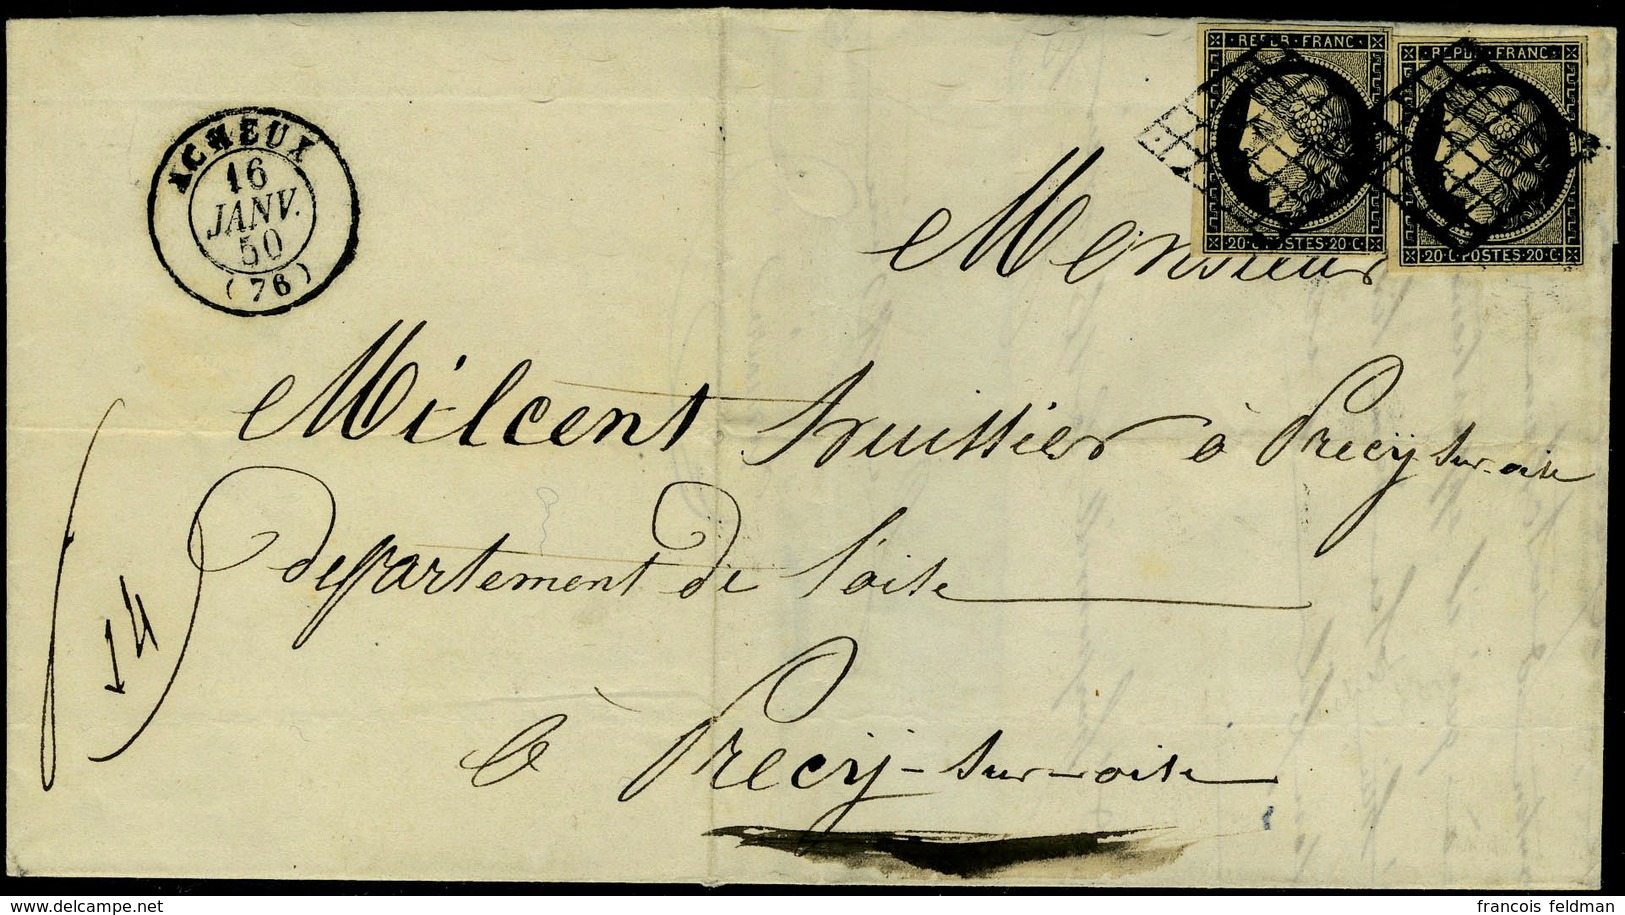 REPUB·FRANC·
20·C·POSTES·20·C·
REPUB·FRANC·
20·C·POSTES·20·C·
ACHEUX
16
JANV.
50
(76)
Monsieur
Milcent huissier à Précy-sur-oise
département de l'oise
à Précy-sur-oise
14
www.delcampe.net
francois feldman